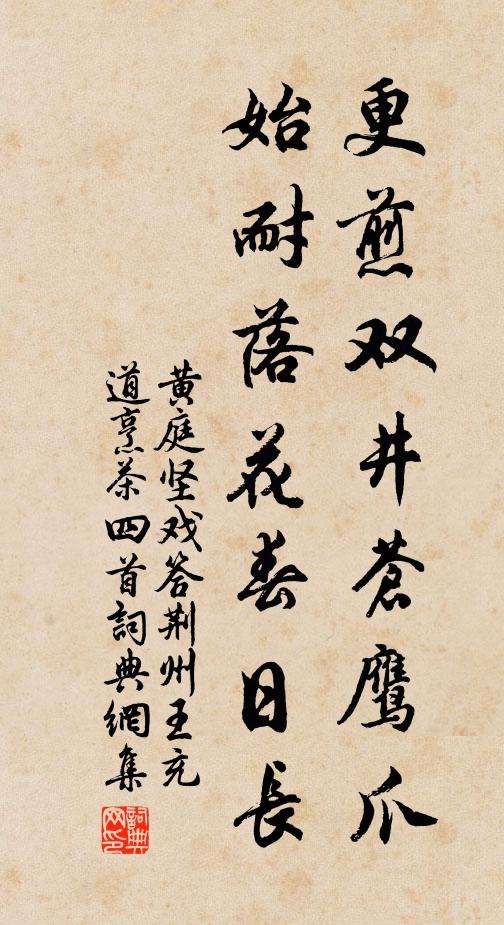 更煎双井蒼鹰爪
始耐落花春日長
黄庭坚戏答荆州王充
道烹茶四首詞典網集
詞典
网印